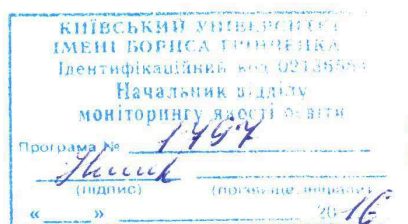 КИЇВСЬКИЙ УНІВЕРСИТЕТ
ІМЕНІ БОРИСА ГРІНЧЕНКА
Ідентифікаційний код 02136554
Начальник відділу
моніторингу якості освіти
Програма № 1797
(підпис) (прізвище, ініціали)
« » 2016